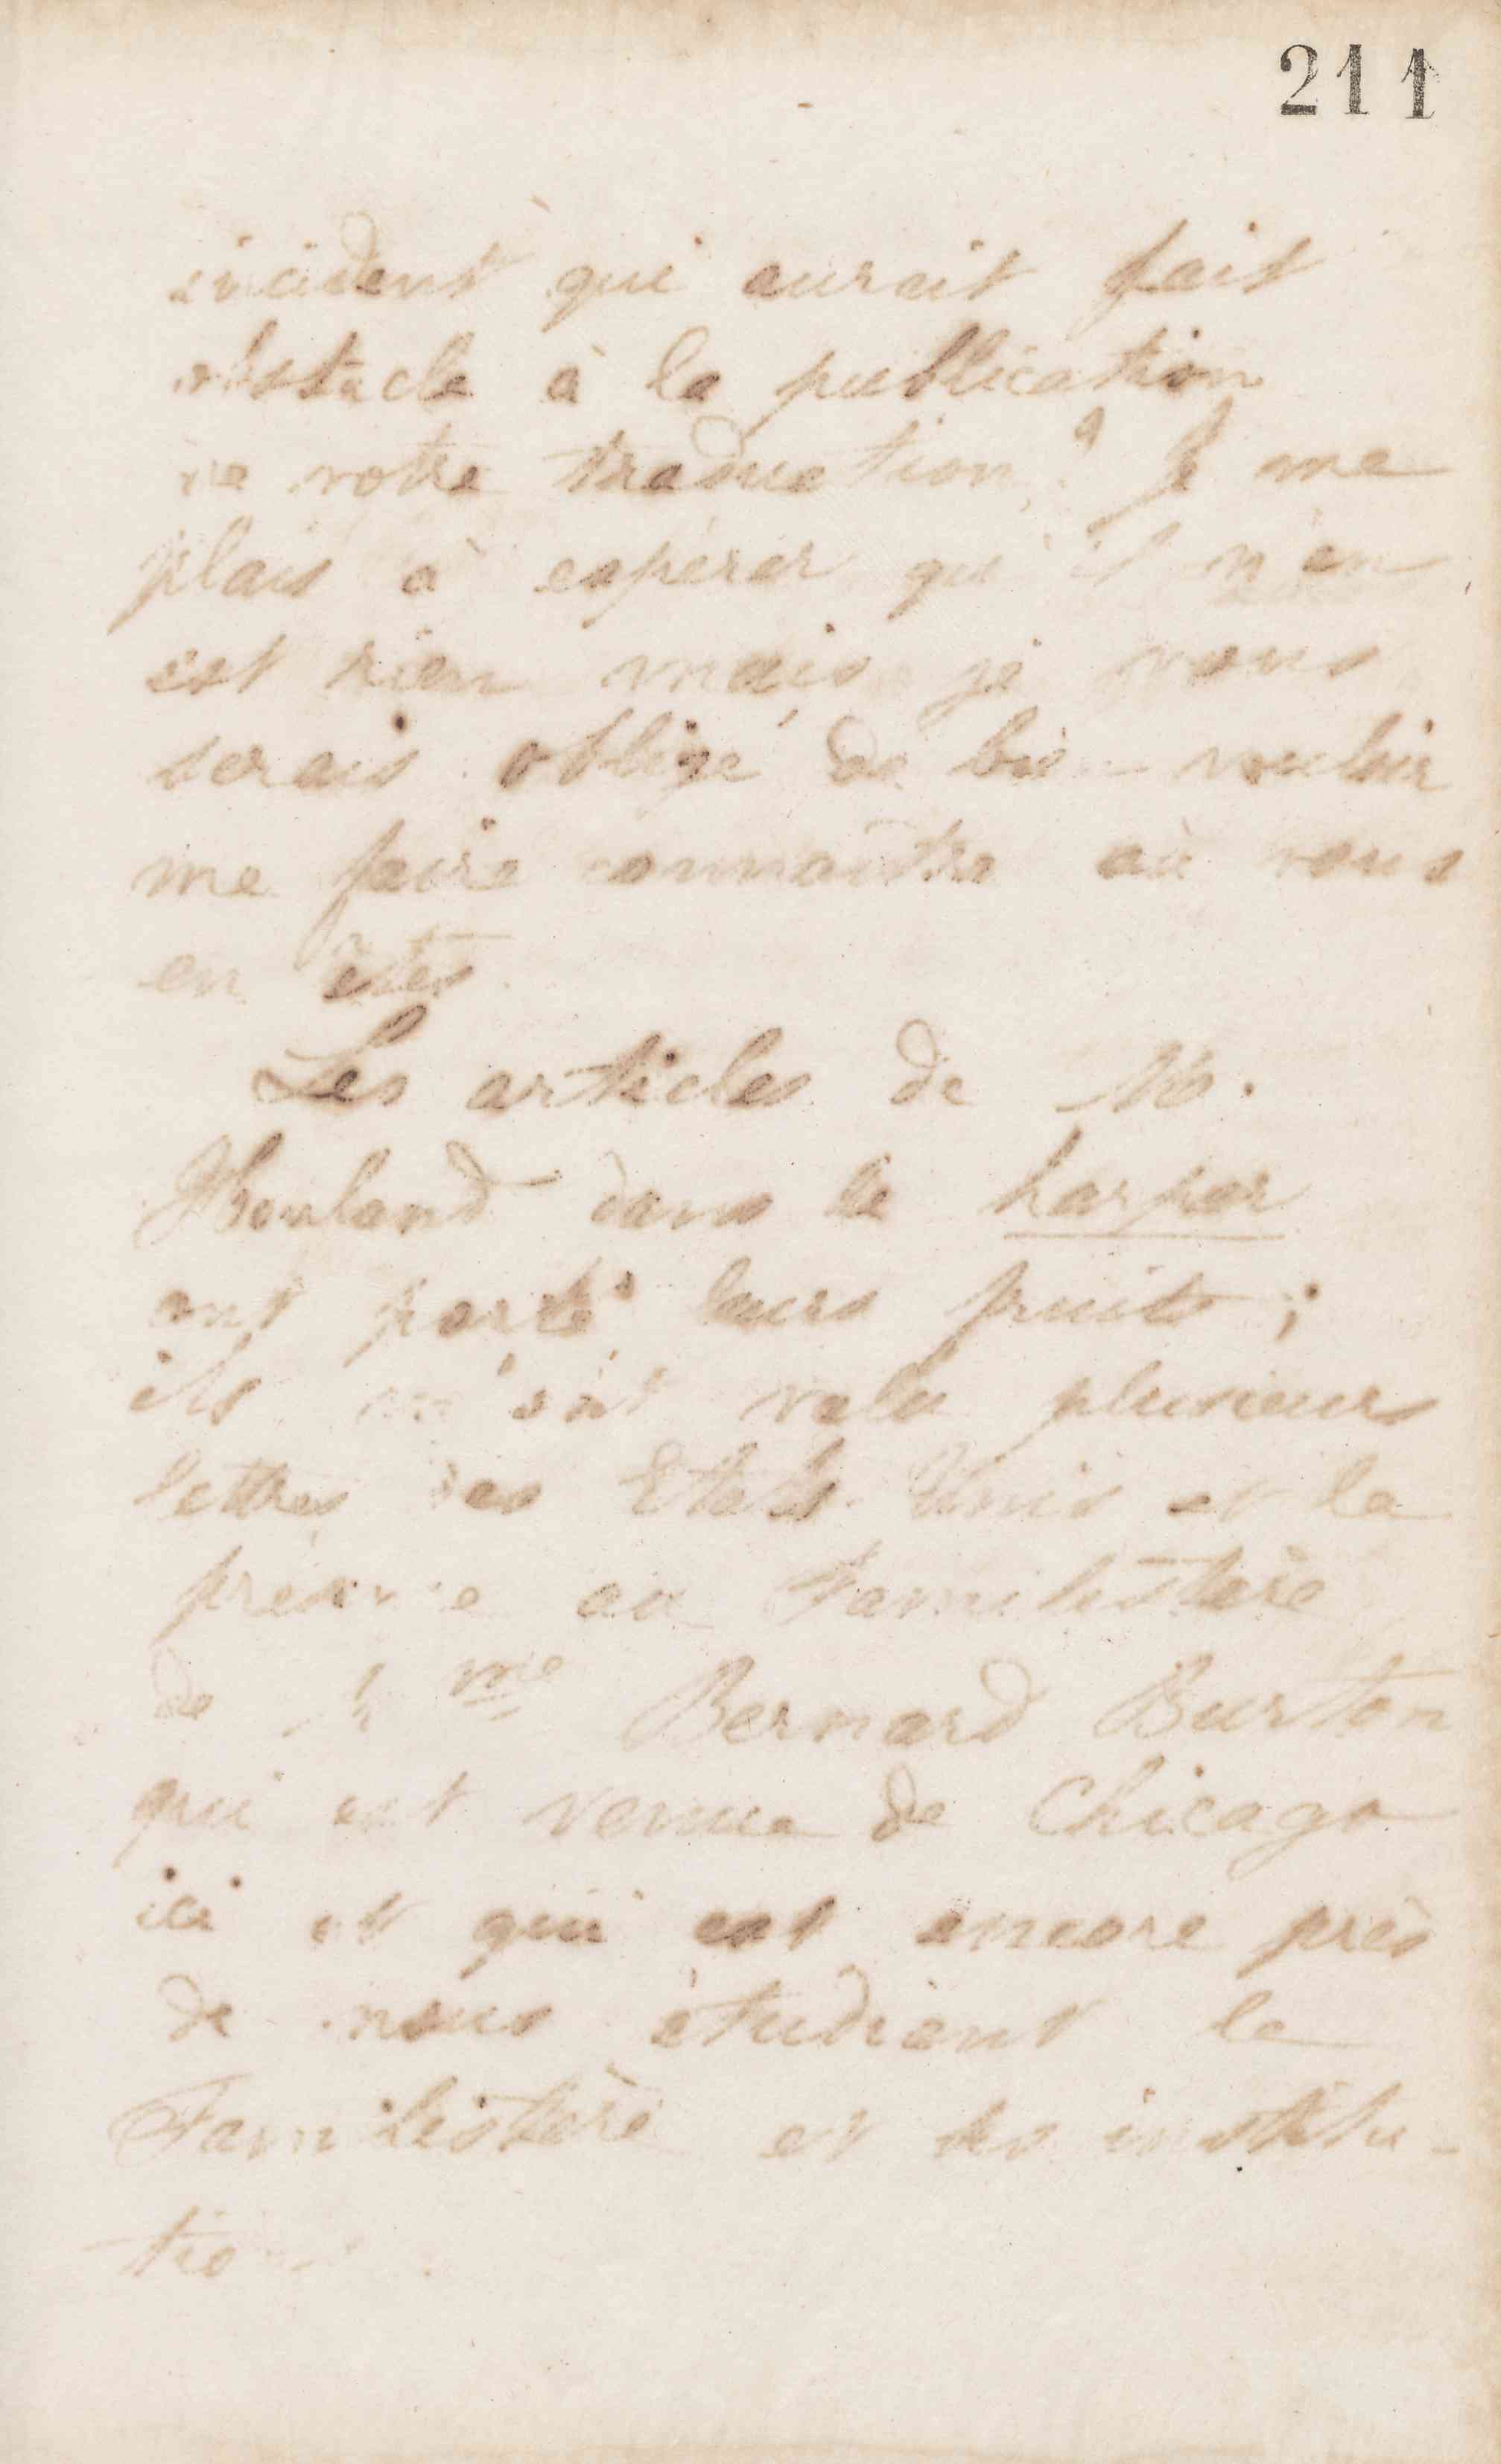 211
incident qui aurait fait
obstacle à la publication
de votre traduction ? Je me
plais à espérer qu'il n'en
est rien mais je vous
serais obligé de bien vouloir
me faire connaître où vous
en êtes.
Les articles de M.
Howland dans le harper
ont porté leurs fruits ;
ils m'ont valu plusieurs
lettres des Etats-Unis et la
présence au Familistère
de Mme Bernard Burton
qui est venue de Chicago
ici et qui est encore près
de nous étudiant le
Familistère et ses institu-
tions.